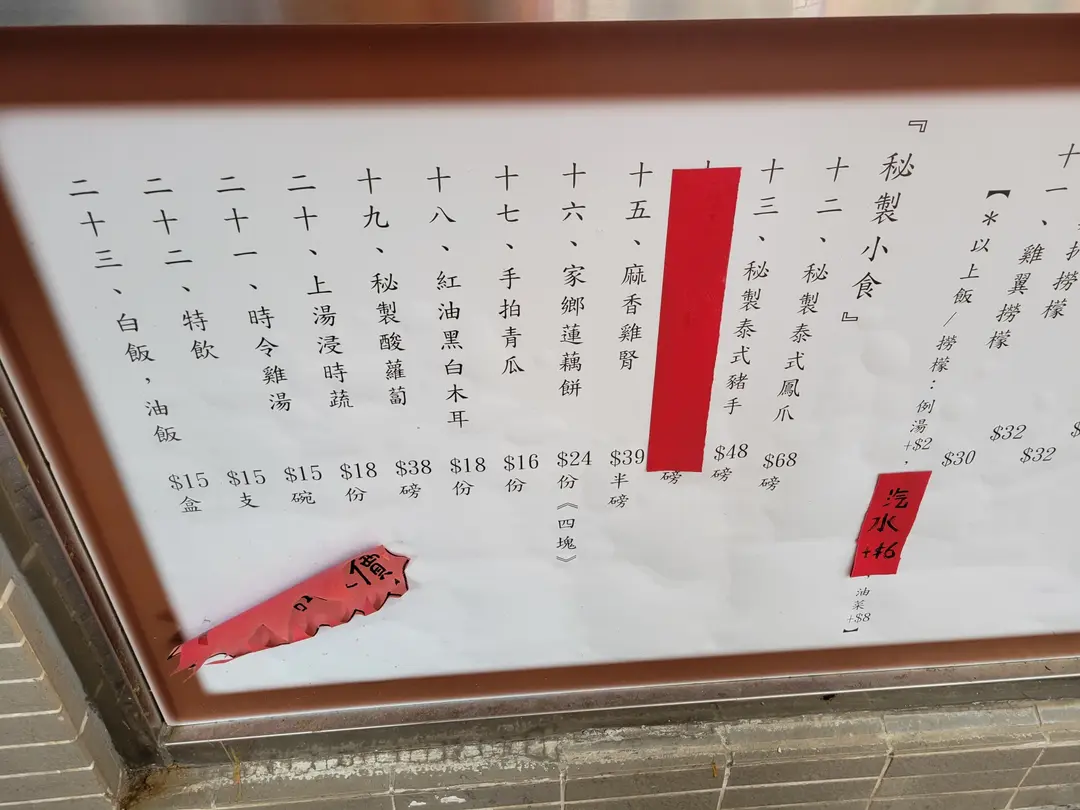 十一、雞翼撈檬 $32
【＊以上飯/撈檬：例湯+$2，
汽水+$6
油菜+$8】
$32
$30
『秘製小食』
十二、秘製泰式鳳爪 $68磅
十三、秘製泰式豬手 $48磅
磅
十五、麻香雞腎 $39半磅
十六、家鄉蓮藕餅 $24份《四塊》
十七、手拍青瓜 $16份
十八、紅油黑白木耳 $18份
十九、秘製酸蘿蔔 $38磅
二十、上湯浸時蔬 $18份
二十一、時令雞湯 $15碗
二十二、特飲 $15支
二十三、白飯，油飯 $15盒
價